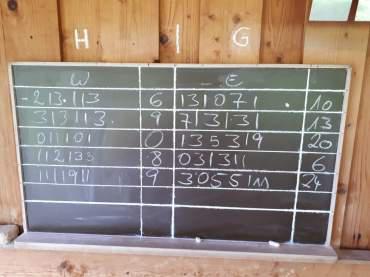 H | G
W E
-213.113 6 131071. 10
313113. 9 713131 13
011101 0 135319 20
112133 8 031311 6
111911 9 30551M 24